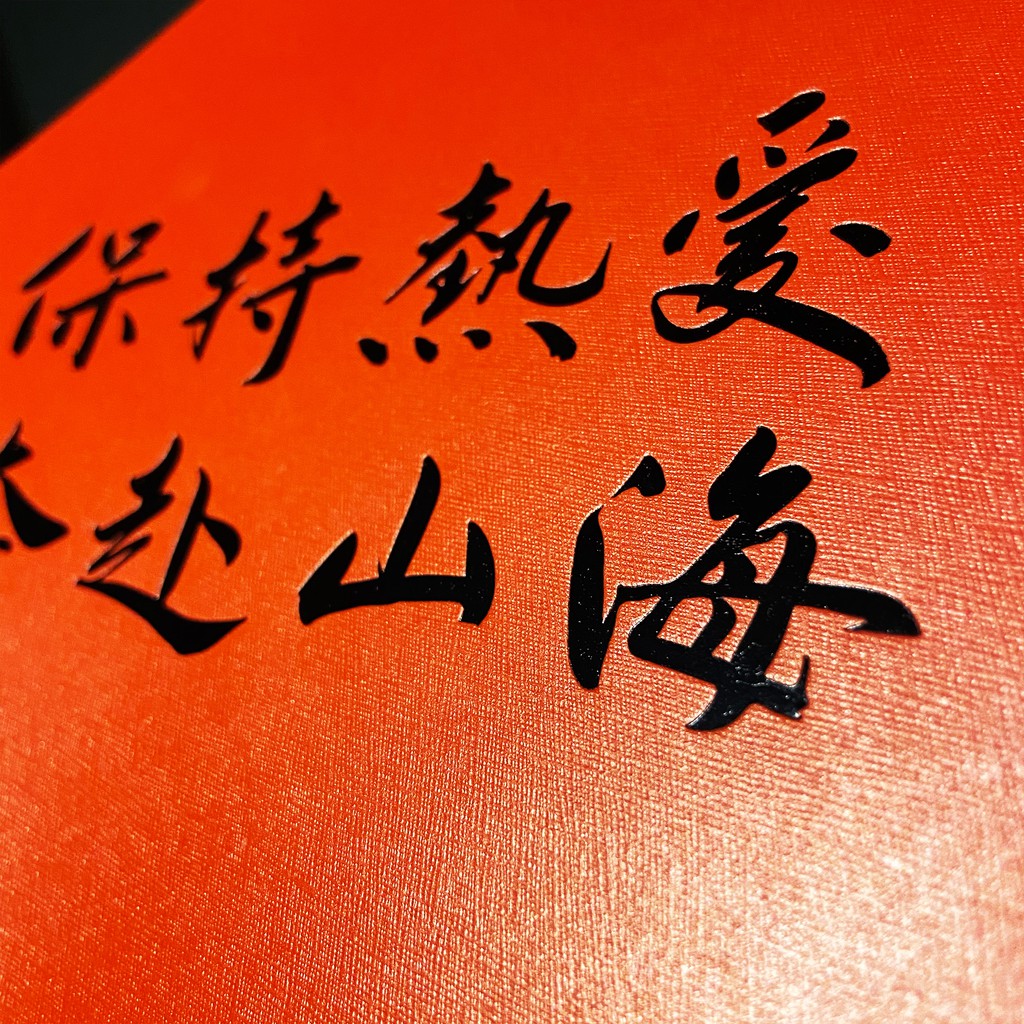 保持熱愛
赴山海